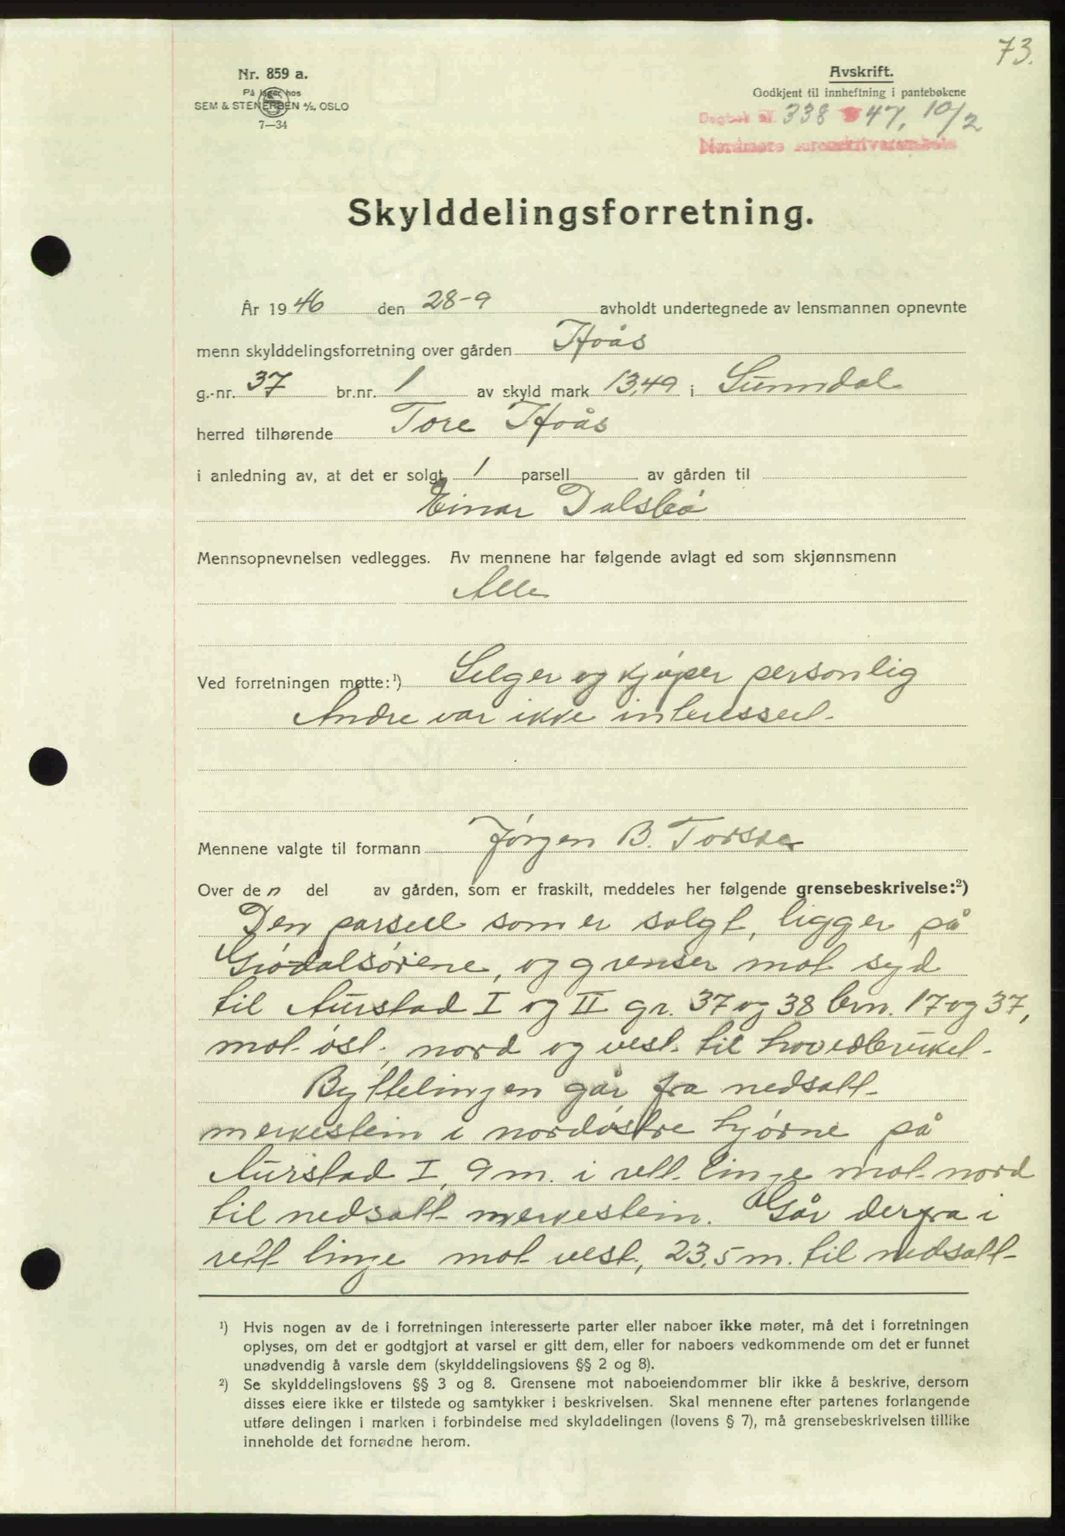 73.
Nr. 859 a.
På lager hos
SEM & STENERSEN A/S, OSLO
7—34
Avskrift.
Godkjent til innheftning i pantebøkene
Dagbok nr. 338 47, 10/2
Nordmøre sorenskriverembete
Skylddelingsforretning.
År 1946 den 28-9 avholdt undertegnede av lensmannen opnevnte
menn skylddelingsforretning over gården Hoås
g.-nr. 37 br.nr. 1 av skyld mark 13,49 i Sunndal
herred tilhørende Tore Hoås
i anledning av, at det er solgt 1 parsell av gården til
Einar Dalsbø
Mennsopnevnelsen vedlegges. Av mennene har følgende avlagt ed som skjønnsmenn
Alle
Ved forretningen møtte:¹) Selger og kjøper personlig
Andre var ikke interessert.
Mennene valgte til formann Jørgen B. Torske
Over den del av gården, som er fraskilt, meddeles her følgende grensebeskrivelse:²)
Den parsell som er solgt, ligger på
Grødalsørene, og grenser mot syd
til Aurstad I og II gr. 37 og 38 brn. 17 og 37,
mot øst, nord og vest til hovedbruket.
Byttelinjen går fra nedsatt
merkestein i nordøstre hjørne på
Aurstad I, 9 m. i rett linje mot nord
til nedsatt merkestein. Går derfra i
rett linje mot vest, 23,5 m. til nedsatt
¹) Hvis nogen av de i forretningen interesserte parter eller naboer ikke møter, må det i forretningen
oplyses, om det er godtgjort at varsel er gitt dem, eller for naboers vedkommende om det er funnet
unødvendig å varsle dem (skylddelingslovens §§ 2 og 8).
²) Se skylddelingslovens §§ 3 og 8. Grensene mot naboeiendommer blir ikke å beskrive, dersom
disses eiere ikke er tilstede og samtykker i beskrivelsen. Skal mennene efter partenes forlangende
utføre delingen i marken i forbindelse med skylddelingen (lovens § 7), må grensebeskrivelsen tillike
inneholde det fornødne herom.